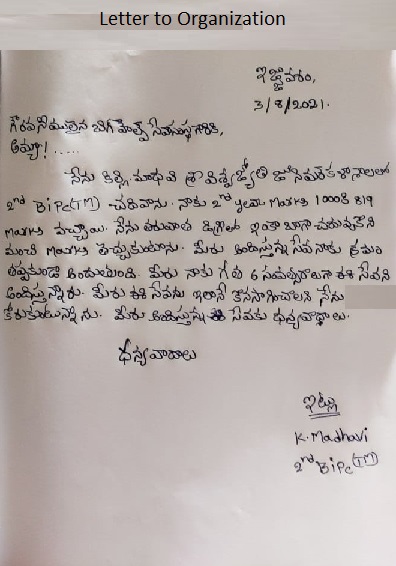 Letter to Organization
ఇచ్ఛాపురం,
3/8/2021.
గౌరవనీయులైన బిగ్ హెల్ప్ సేవాసంస్థ గారికి,
అమ్మా! ......
నేను కిల్లి మాధవి శ్రీ విశ్వజ్యోతి జూనియర్ కళాశాలలో
2nd BiPc(TM) చదివాను. నాకు 2nd year Marks 1000కి 819
Marks వచ్చాయి. నేను తరువాత డిగ్రీలో ఇంకా బాగా చదువుకొని
మంచి Marks తెచ్చుకుంటాను. మీరు అందిస్తున్న సేవ నాకు క్రమం
తప్పకుండా అందుతుంది. మీరు నాకు గత 6 సంవత్సరాలుగా ఈ సేవని
అందిస్తున్నారు. మీరు ఈ సేవను ఇలానే కొనసాగించాలని నేను
కోరుకుంటున్నాను. మీరు అందిస్తున్న ఈ సేవకు ధన్యవాదాలు.
ధన్యవాదాలు
ఇట్లు
K. Madhavi
2nd BiPc(TM)